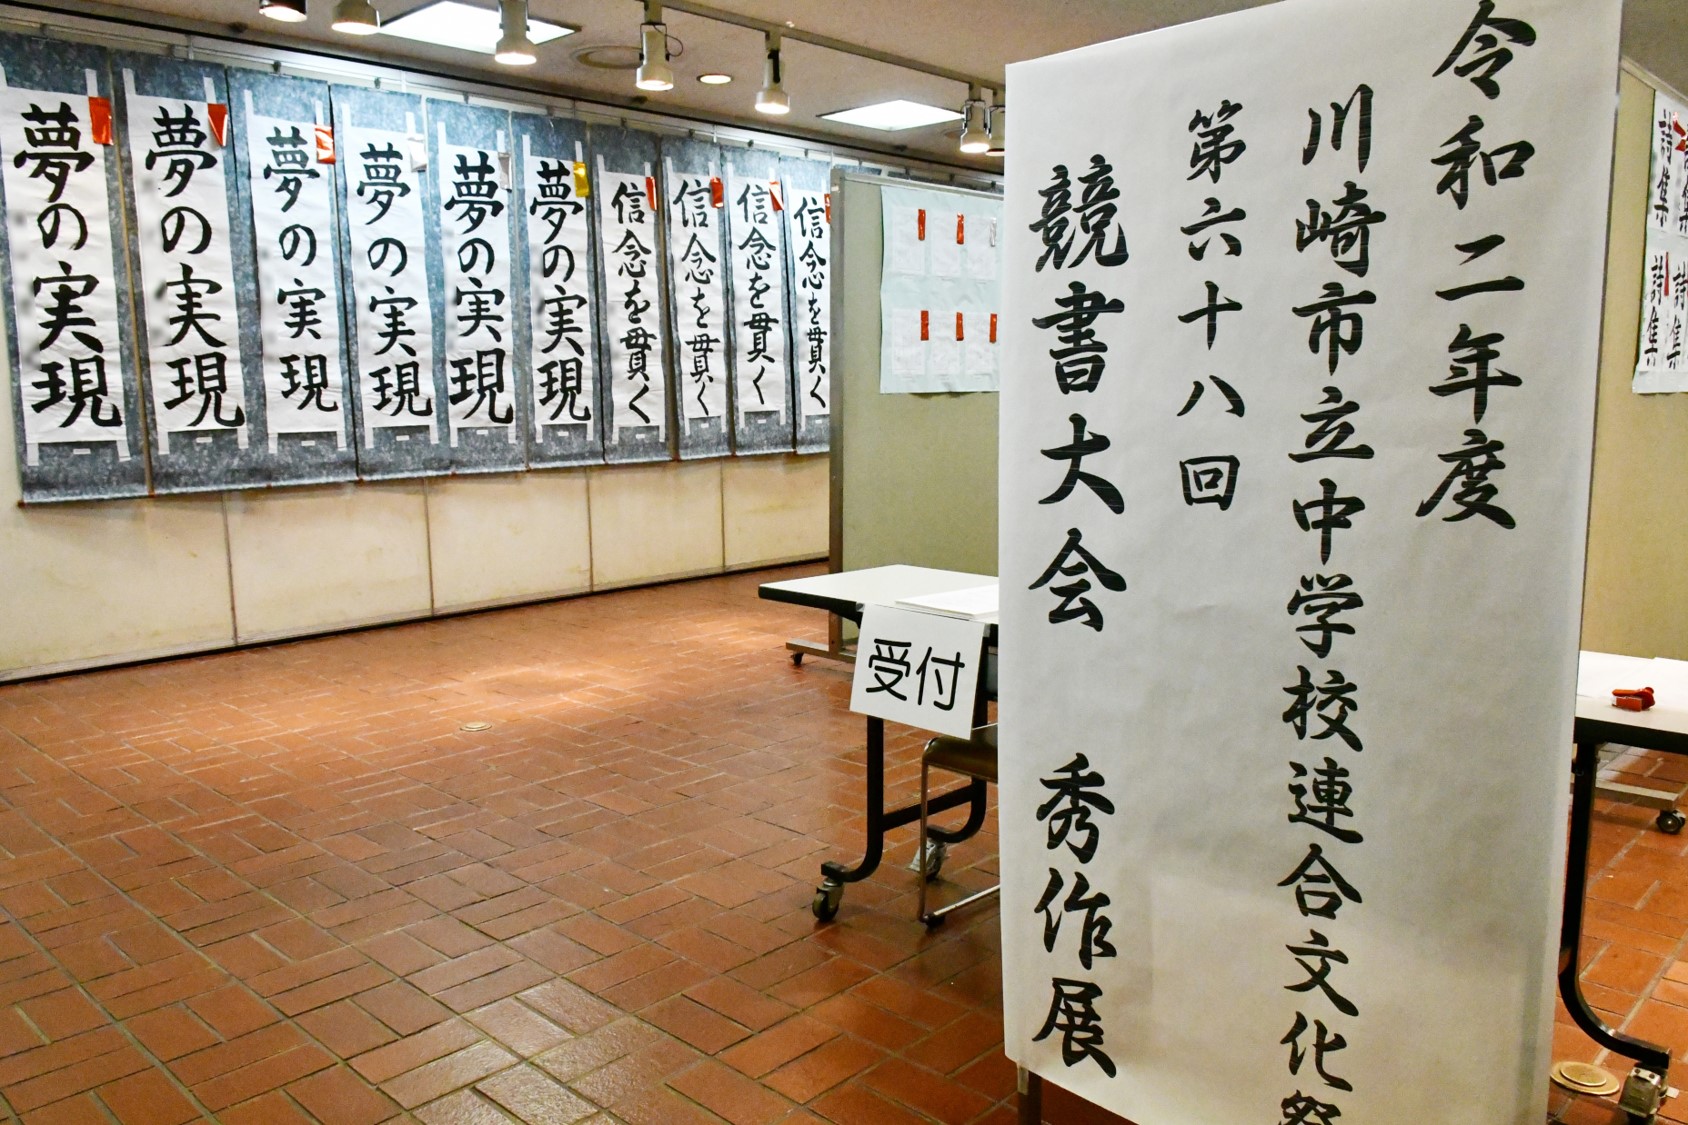 令和二年度
川崎市立中学校連合文化祭
第六十八回
競書大会 秀作展
受付
夢の実現
夢の実現
夢の実現
夢の実現
夢の実現
夢の実現
信念を貫く
信念を貫く
信念を貫く
信念を貫く
詩集
詩集
詩集